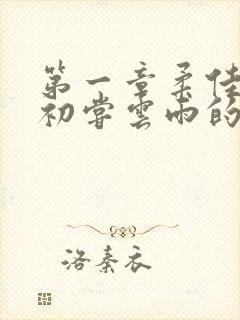 第一章柔佳
初尝雲雨的
洛秦衣